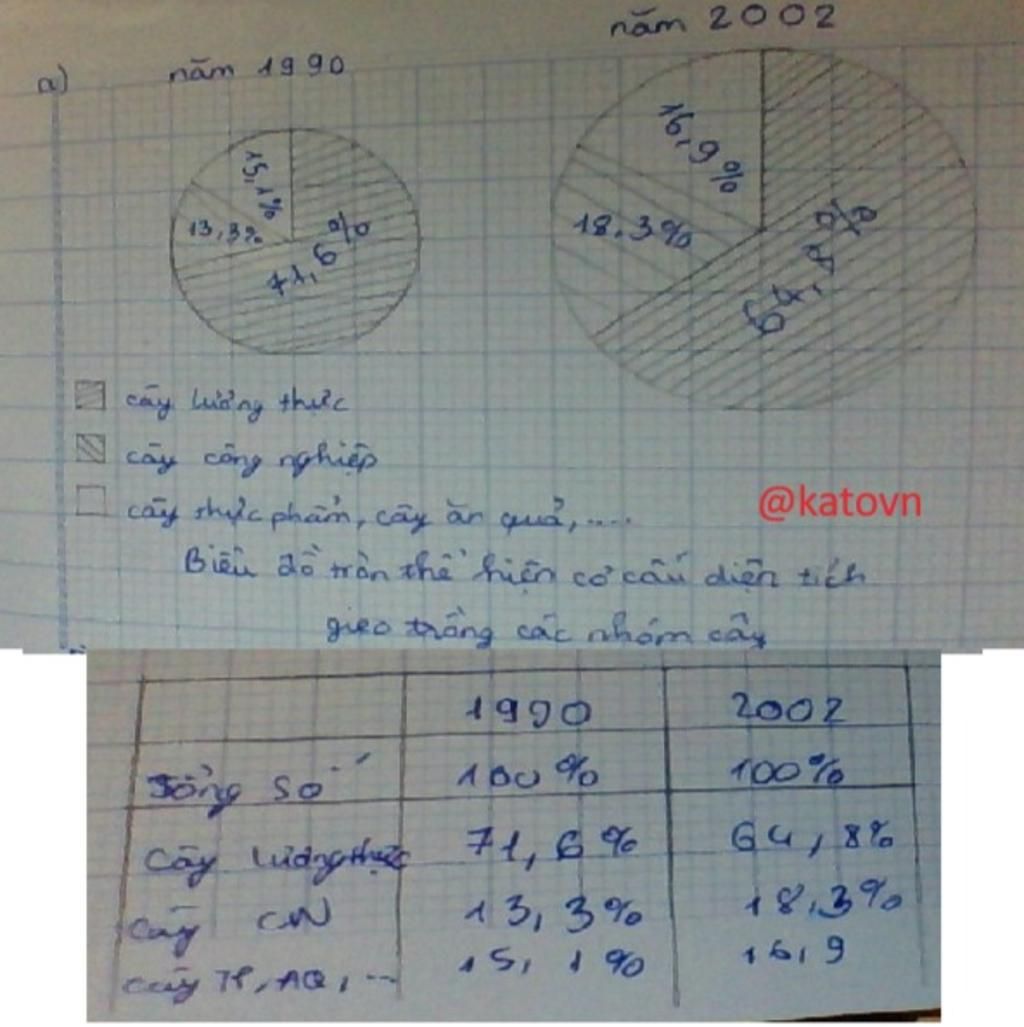 năm 2002
a) năm 1990
15,1%
13,3%
71,6%
16,9%
18,3%
64,8%
cây lương thực
cây công nghiệp
cây thực phẩm, cây ăn quả,.....
@katovn
Biểu đồ tròn thể hiện cơ cấu diện tích
gieo trồng các nhóm cây
1990 2002
Tổng số 100% 100%
Cây lương thực 71,6% 64,8%
cây CN 13,3% 18,3%
cây TP, AQ, ... 15,1% 16,9